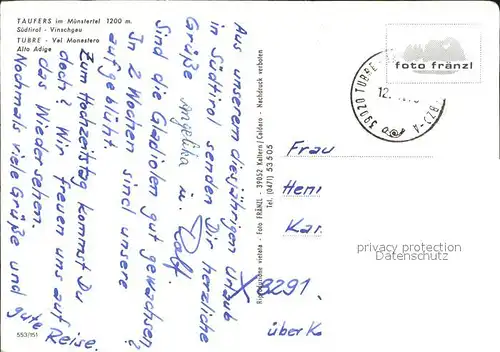 TAUFERS im Münstertal 1200 m.
Südtirol - Vinschgau
TUBRE - Val Monastero
Alto Adige
Aus unserem diesjährigen Urlaub
in Südtirol senden Dir herzliche
Grüße Angelika u. Ralf.
Sind die Gladiolen gut gewachsen?
In 2 Wochen sind unsere
aufgeblüht.
Zum Hochzeitstag kommst Du
doch? Wir freuen uns auf
das Wiedersehen.
Nochmals viele Grüße und
gute Reise.
553/151
Riproduzione vietata - Foto FRÄNZL - 39052 Kaltern/Caldaro - Nachdruck verboten
Tel. (0471) 53505
foto fränzl
39020 TUBRE
(BZ)
12.
Frau
Heni
Kar.
X8291
über K
privacy protection
Datenschutz